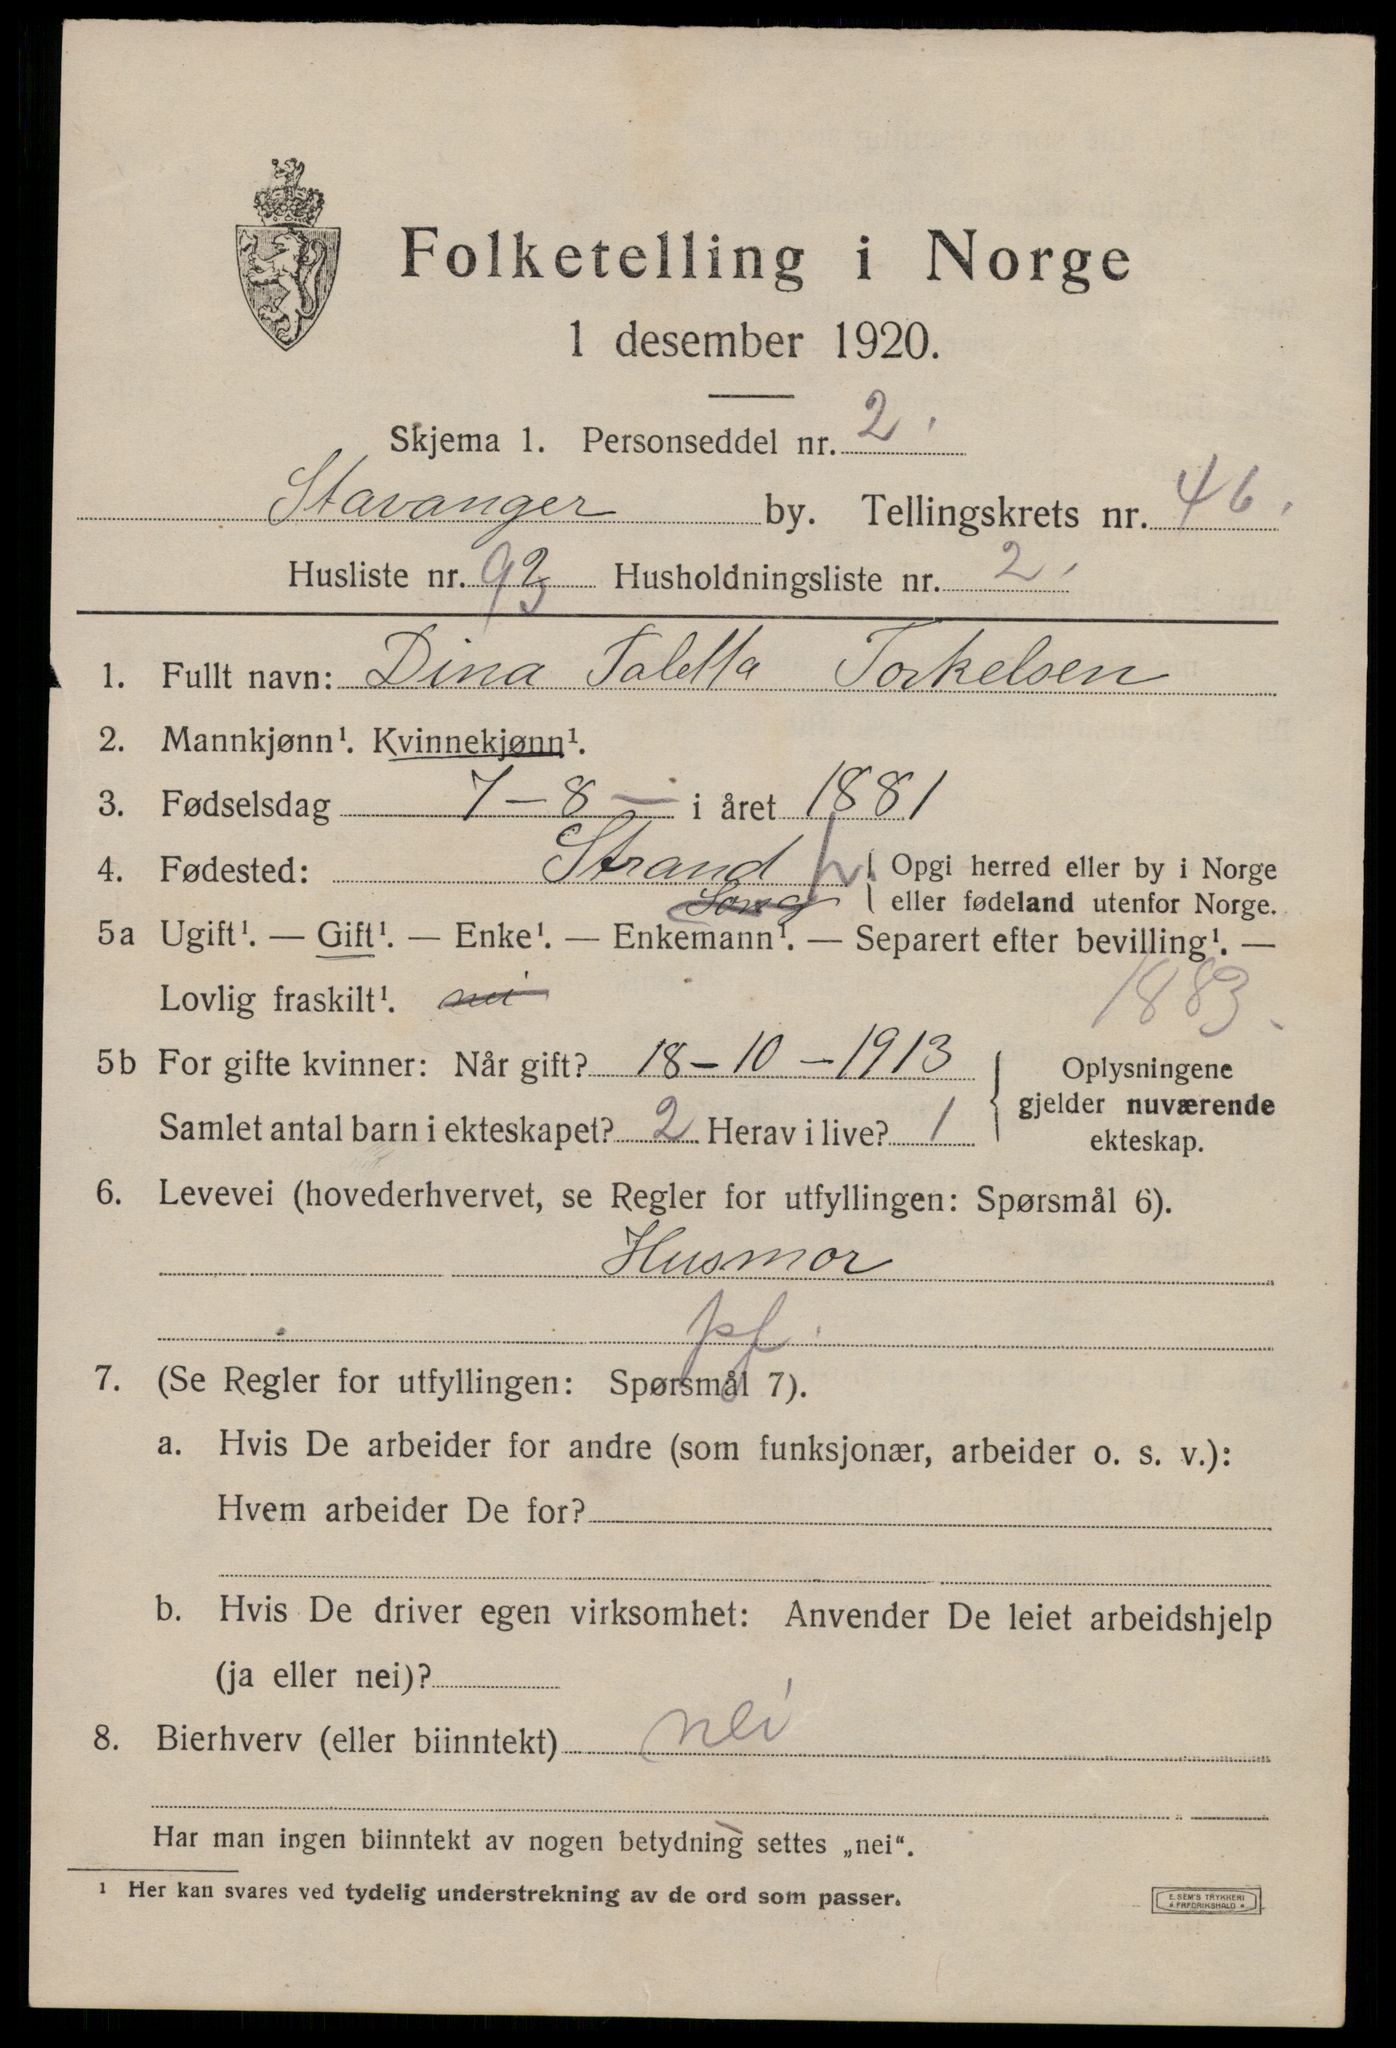 Folketelling i Norge
1 desember 1920.
Skjema 1. Personseddel nr. 2.
Stavanger by. Tellingskrets nr. 46.
Husliste nr. 93 Husholdningsliste nr. 2.
1. Fullt navn: Dina Taletta Torkelsen
2. Mannkjønn¹. Kvinnekjønn¹.
3. Fødselsdag 7-8- i året 1881
4. Fødested: Strand h { Opgi herred eller by i Norge
eller fødeland utenfor Norge.
5a Ugift¹. — Gift¹. — Enke¹. — Enkemann¹. — Separert efter bevilling¹. —
Lovlig fraskilt¹. nei 1883.
5b For gifte kvinner: Når gift? 18-10-1913 { Oplysningene
gjelder nuværende
ekteskap.
Samlet antal barn i ekteskapet? 2 Herav i live? 1
6. Levevei (hovederhvervet, se Regler for utfyllingen: Spørsmål 6).
Husmor
pf.
7. (Se Regler for utfyllingen: Spørsmål 7).
a. Hvis De arbeider for andre (som funksjonær, arbeider o. s. v.):
Hvem arbeider De for?
b. Hvis De driver egen virksomhet: Anvender De leiet arbeidshjelp
(ja eller nei)?
8. Bierhverv (eller biinntekt) nei
Har man ingen biinntekt av nogen betydning settes „nei“.
¹ Her kan svares ved tydelig understrekning av de ord som passer.
E. SEM'S TRYKKERI
FREDRIKSHALD